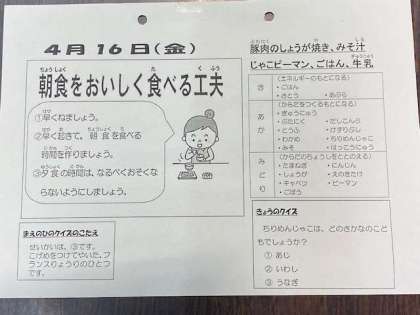 4月16日(金)
朝食をおいしく食べる工夫
①早くねましょう。
②早く起きて、朝食を食べる
時間を作りましょう。
③夕食の時間は、なるべくおそくな
らないようにしましょう。
まえのひのクイズのこたえ
せいかいは、③です。
こげめをつけてやいた、フ
ランスりょうりのひとつ
です。
豚肉のしょうが焼き、みそ汁
じゃこピーマン、ごはん、牛乳
き
(エネルギーのもとになる)
・ごはん
・さとう ・あぶら
あか
(からだをつくるもとになる)
・ぎゅうにゅう
・ぶたにく ・だしこんぶ
・とうふ ・けずりぶし
・わかめ ・ちりめんじゃこ
・みそ ・はっこうにゅう
みどり
(からだのちょうしをととのえる)
・たまねぎ ・にんじん
・しょうが ・えのきたけ
・キャベツ ・ピーマン
・ごぼう
きょうのクイズ
ちりめんじゃこは、どのさかなのこど
もでしょうか?
① あじ
② いわし
③ うなぎ